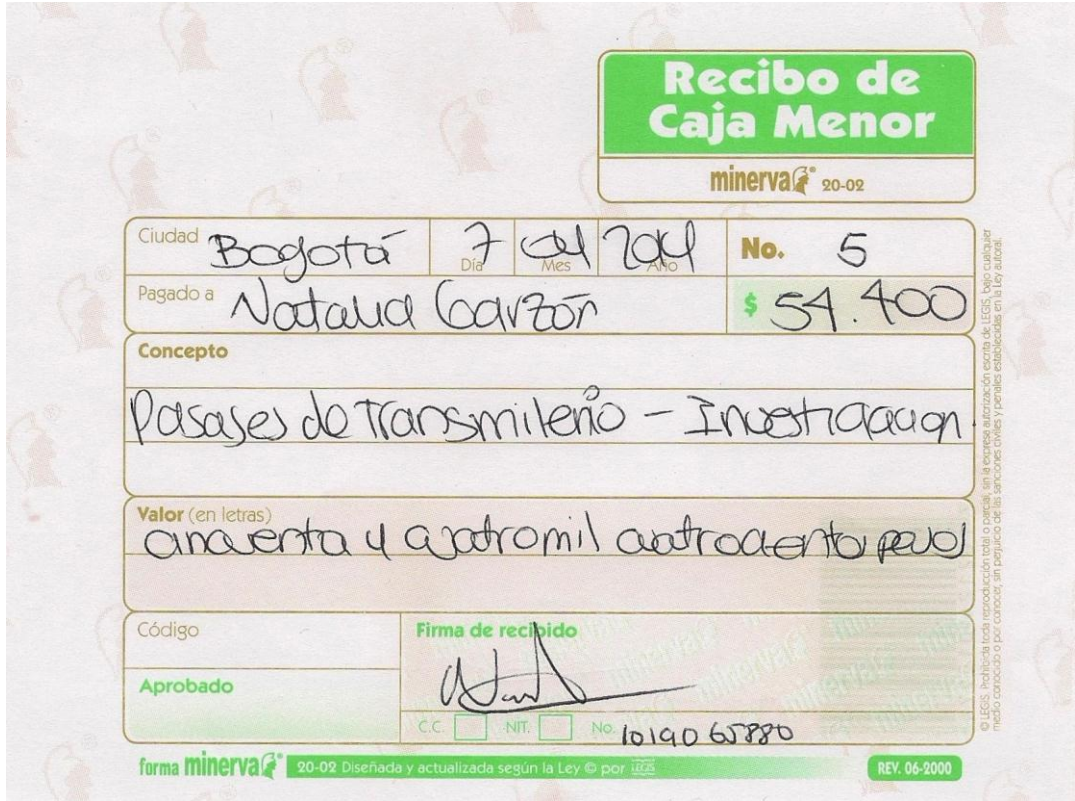 Recibo de
Caja Menor
minerva® 20-02
Ciudad Bogotá 7 Día 04 Mes 2014 Año No. 5
Pagado a Natalia Garzón $ 54.400
Concepto
Pasajes de Transmilenio - Investigacion.
Valor (en letras)
cincuenta y cuatromil cuatrocientos pesos
Código
Firma de recibido
Aprobado
C.C. NIT. No. 1019065880
forma minerva® 20-02 Diseñada y actualizada según la Ley © por LEGIS REV. 06-2000
© LEGIS. Prohibida toda reproducción total o parcial, sin la expresa autorización escrita de LEGIS, bajo cualquier
medio conocido o por conocer, sin perjuicio de las sanciones civiles y penales establecidas en la Ley autoral.